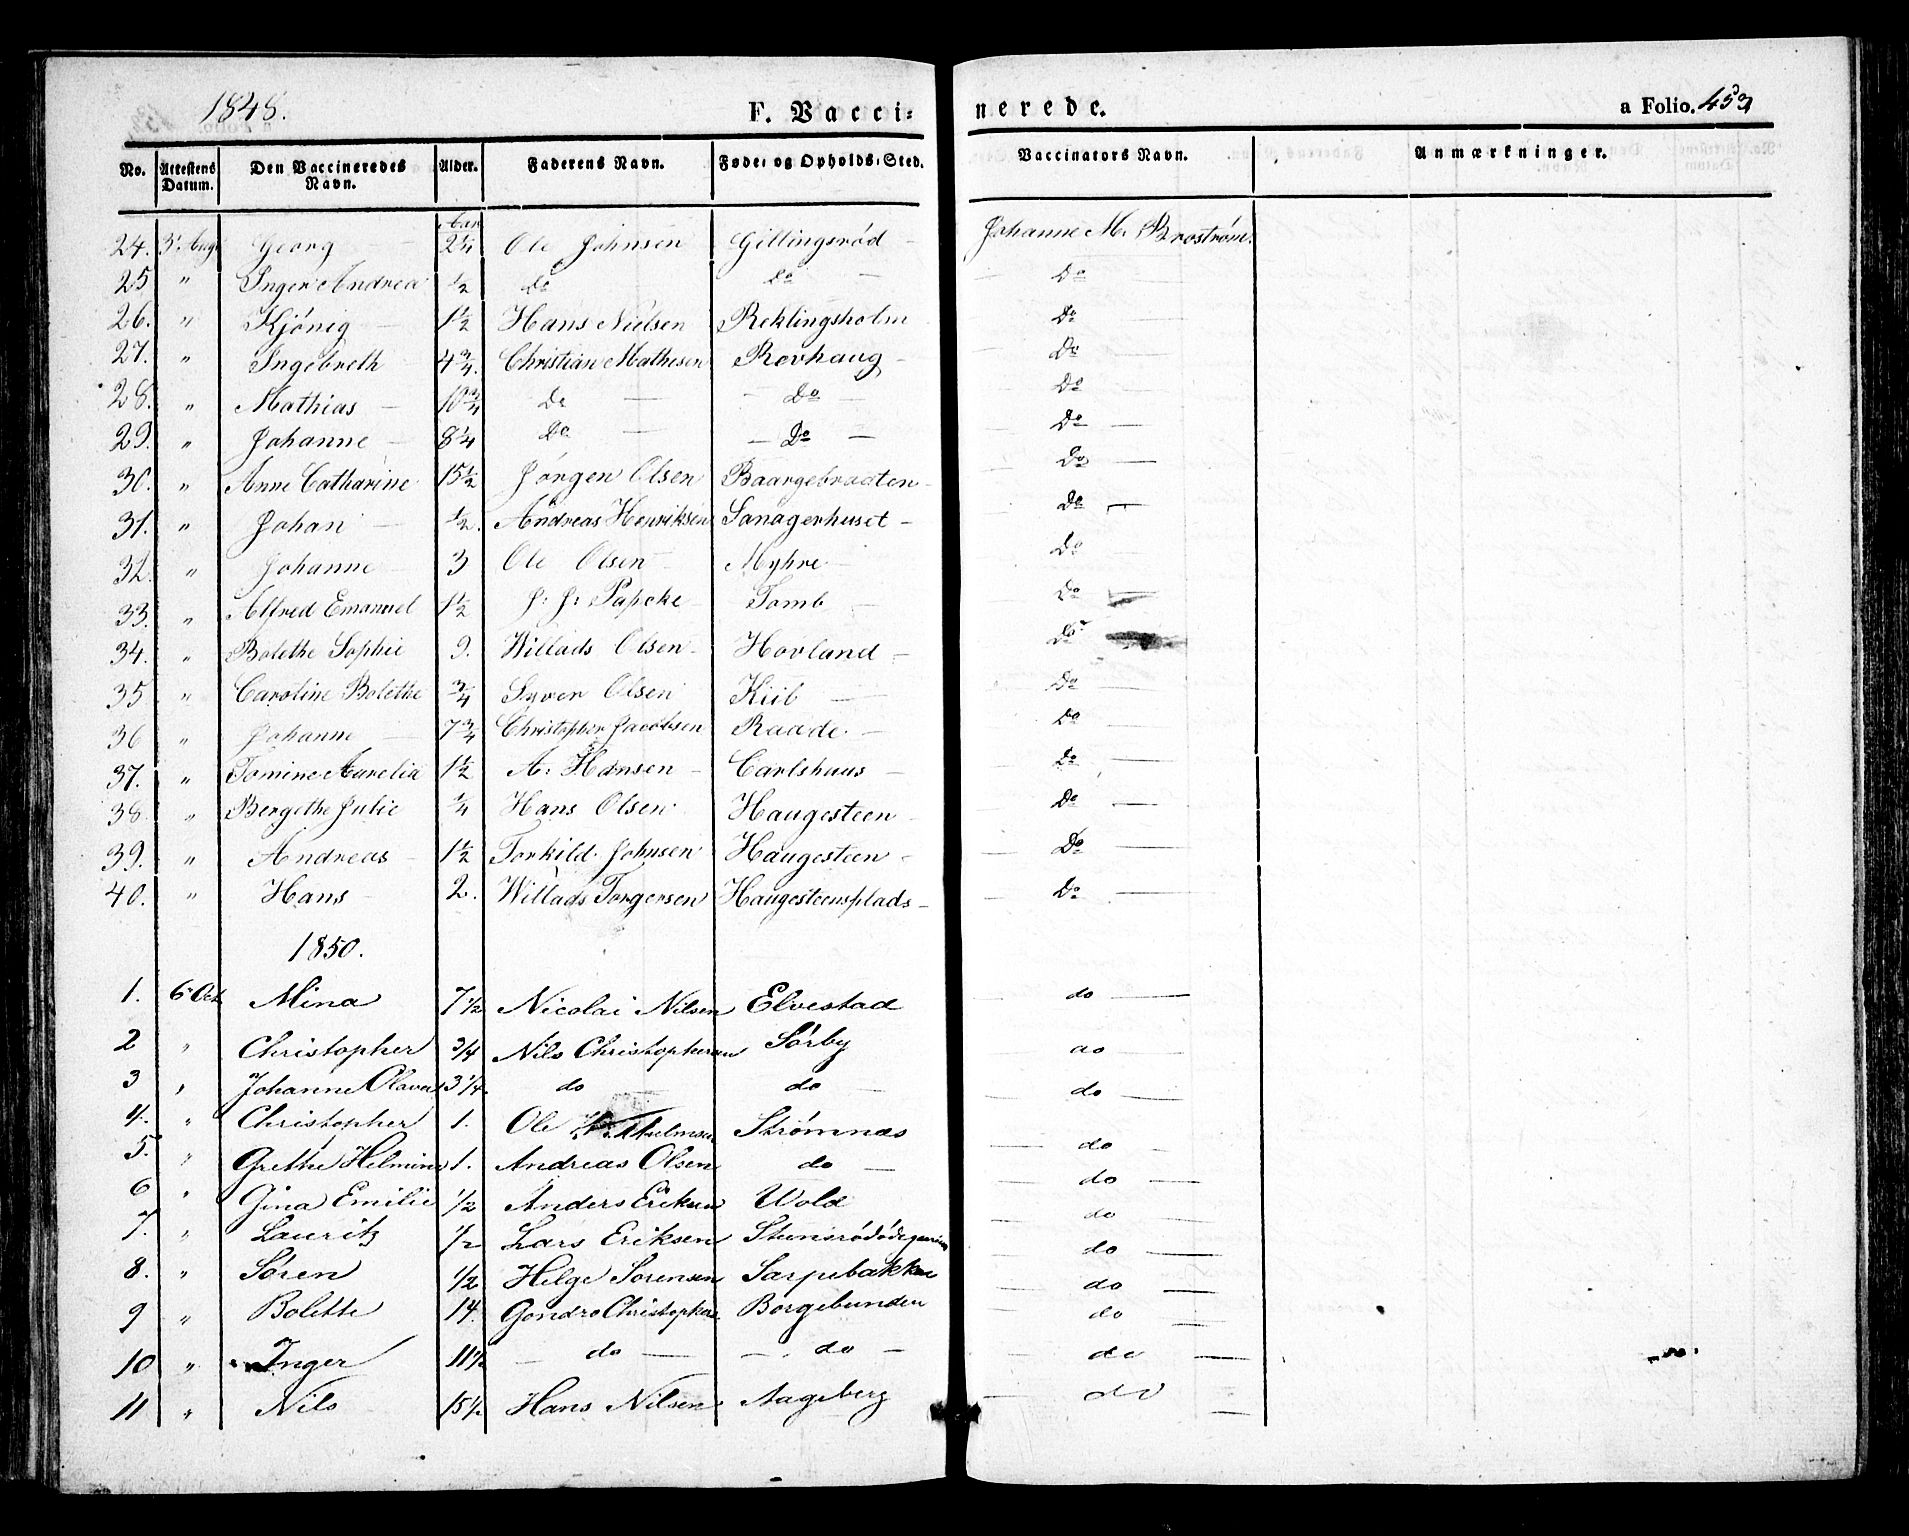 1848. F. Vacci: nerede. a Folio. 453
No. Attestens Datum. Den Vaccineredes Navn. Alder. Faderens Navn. Føde: og Opholds: Sted. Vaccinators Navn. Anmærkninger.
Aar
24. 3' Aug. Georg — 2 1/4 Ole Johnsen Gillingsrød — Johanne M. Broström.
25 " Inger Andrea 1/2 do — do — — Do —
26. " Kjönig — 1 1/2 Hans Nielsen Reklingsholm — Do —
27. " Ingebreth 4 3/4. Christian Mathesen Rovhaug — — Do —
28. " Mathias — 10 3/4 Do — — Do — — Do —
29. " Johanne — 8 1/4 Do — — Do — — Do —
30. " Anne Catharine 15 1/2 Jörgen Olsen Baargebraaten — — Do —
31. " Johan — 1/2. Andreas Henriksen — Do —
32. " Johanne — 3 Ole Olsen — Myhre — — Do —
33. " Alfred Emanuel 1 1/2 J: J: Papcke Tomb — — Do —
34. " Bolethe Sophie 9. Willads Olsen — Hovland — — Do —
35 " Caroline Bolethe 3/4 Syver Olsen Kiib — — Do —
36 " Johanne — 7 3/4 Christopher Jacobsen Raade. — — Do —
37. " Tomine Aurelia 1 1/2 A. Hansen — Carlshuus — — Do —
38 " Bergithe Julie 1/4 Hans Olsen Haugesteen — — Do —
39. " Andreas — 1 1/2 Torkild Johnsen Haugesteen — — Do —
40. " Hans — 2. Willads Torgersen Haugesteensplads — — Do —
1850.
1. 6 Oct Mina 7 1/2 Nicolai Nilsen Elvestad — do —
2 " Christopher 3/4 Nils Christophersen Sörby — do —
3 " Johanne Olava 3 1/4. do — do — — do —
4. " Christopher 1. Ole Strømnæs — do —
5. " Grethe Helmine 1. Andreas Olsen do — — do —
6 " Gina Emilie 1/2 Anders Eriksen Wold — do —
7. " Lauritz 1/2 Lars Eriksen — do —
8. " Søren 1/2 Helge Sorensen Sarpebakken — do —
9 " Bolette 14. Gondro Christophersen Borgebunden — do —
10 " Inger 11 1/2 — do — — do — — do —
11 " Nils 15 1/2 Hans Nilsen Aageberg — do —